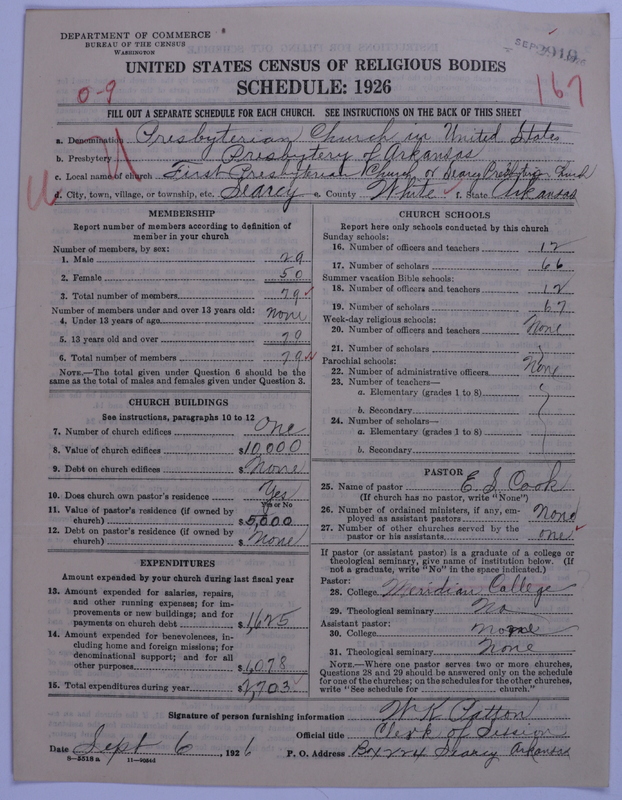 DEPARTMENT OF COMMERCE
BUREAU OF THE CENSUS
WASHINGTON
UNITED STATES CENSUS OF RELIGIOUS BODIES
SCHEDULE: 1926
0-9
167
FILL OUT A SEPARATE SCHEDULE FOR EACH CHURCH. SEE INSTRUCTIONS ON THE BACK OF THIS SHEET
a. Denomination Presbyterian Church in United States
b. Presbytery Presbytery of Arkansas
c. Local name of church First Presbyterian Church or Searcy Presbyterian Church
d. City, town, village, or township, etc. Searcy e. County White f. State Arkansas
MEMBERSHIP
Report number of members according to definition of member in your church
Number of members, by sex:
1. Male 29
2. Female 50
3. Total number of members 79
Number of members under and over 13 years old:
4. Under 13 years of age None
5. 13 years old and over 79
6. Total number of members 79
NOTE.—The total given under Question 6 should be the
same as the total of males and females given under Question 3.
CHURCH BUILDINGS
See instructions, paragraphs 10 to 12
7. Number of church edifices One
8. Value of church edifices $10,000
9. Debt on church edifices $ None
10. Does church own pastor's residence Yes
Yes or No
11. Value of pastor's residence (if owned by
church) $5,000
12. Debt on pastor's residence (if owned by
church) $ None
EXPENDITURES
Amount expended by your church during last fiscal year
13. Amount expended for salaries, repairs,
and other running expenses; for im-
provements or new buildings; and for
payments on church debt $1,625
14. Amount expended for benevolences, in-
cluding home and foreign missions; for
denominational support; and for all
other purposes $1,078
15. Total expenditures during year $2,703
CHURCH SCHOOLS
Report here only schools conducted by this church
Sunday schools:
16. Number of officers and teachers 12
17. Number of scholars 66
Summer vacation Bible schools:
18. Number of officers and teachers 12
19. Number of scholars 67
Week-day religious schools:
20. Number of officers and teachers None
21. Number of scholars
Parochial schools:
22. Number of administrative officers None
23. Number of teachers—
a. Elementary (grades 1 to 8)
b. Secondary
24. Number of scholars—
a. Elementary (grades 1 to 8)
b. Secondary
PASTOR
25. Name of pastor E. I. Cook
(If church has no pastor, write "None")
26. Number of ordained ministers, if any, em-
ployed as assistant pastors None
27. Number of other churches served by the
pastor or his assistants one
If pastor (or assistant pastor) is a graduate of a college or
theological seminary, give name of institution below. (If
not a graduate, write "No" in the space indicated.)
Pastor:
28. College Meridian College
29. Theological seminary No
Assistant pastor:
30. College None
31. Theological seminary None
NOTE.—Where one pastor serves two or more churches,
Questions 28 and 29 should be answered only on the schedule
for one of the churches; on the schedules for the other churches,
write "See schedule for church."
Signature of person furnishing information W K Patton
Official title Clerk of Session
Date Sept 6, 1926 P. O. Address Box 224 Searcy Arkansas
8-5518 a